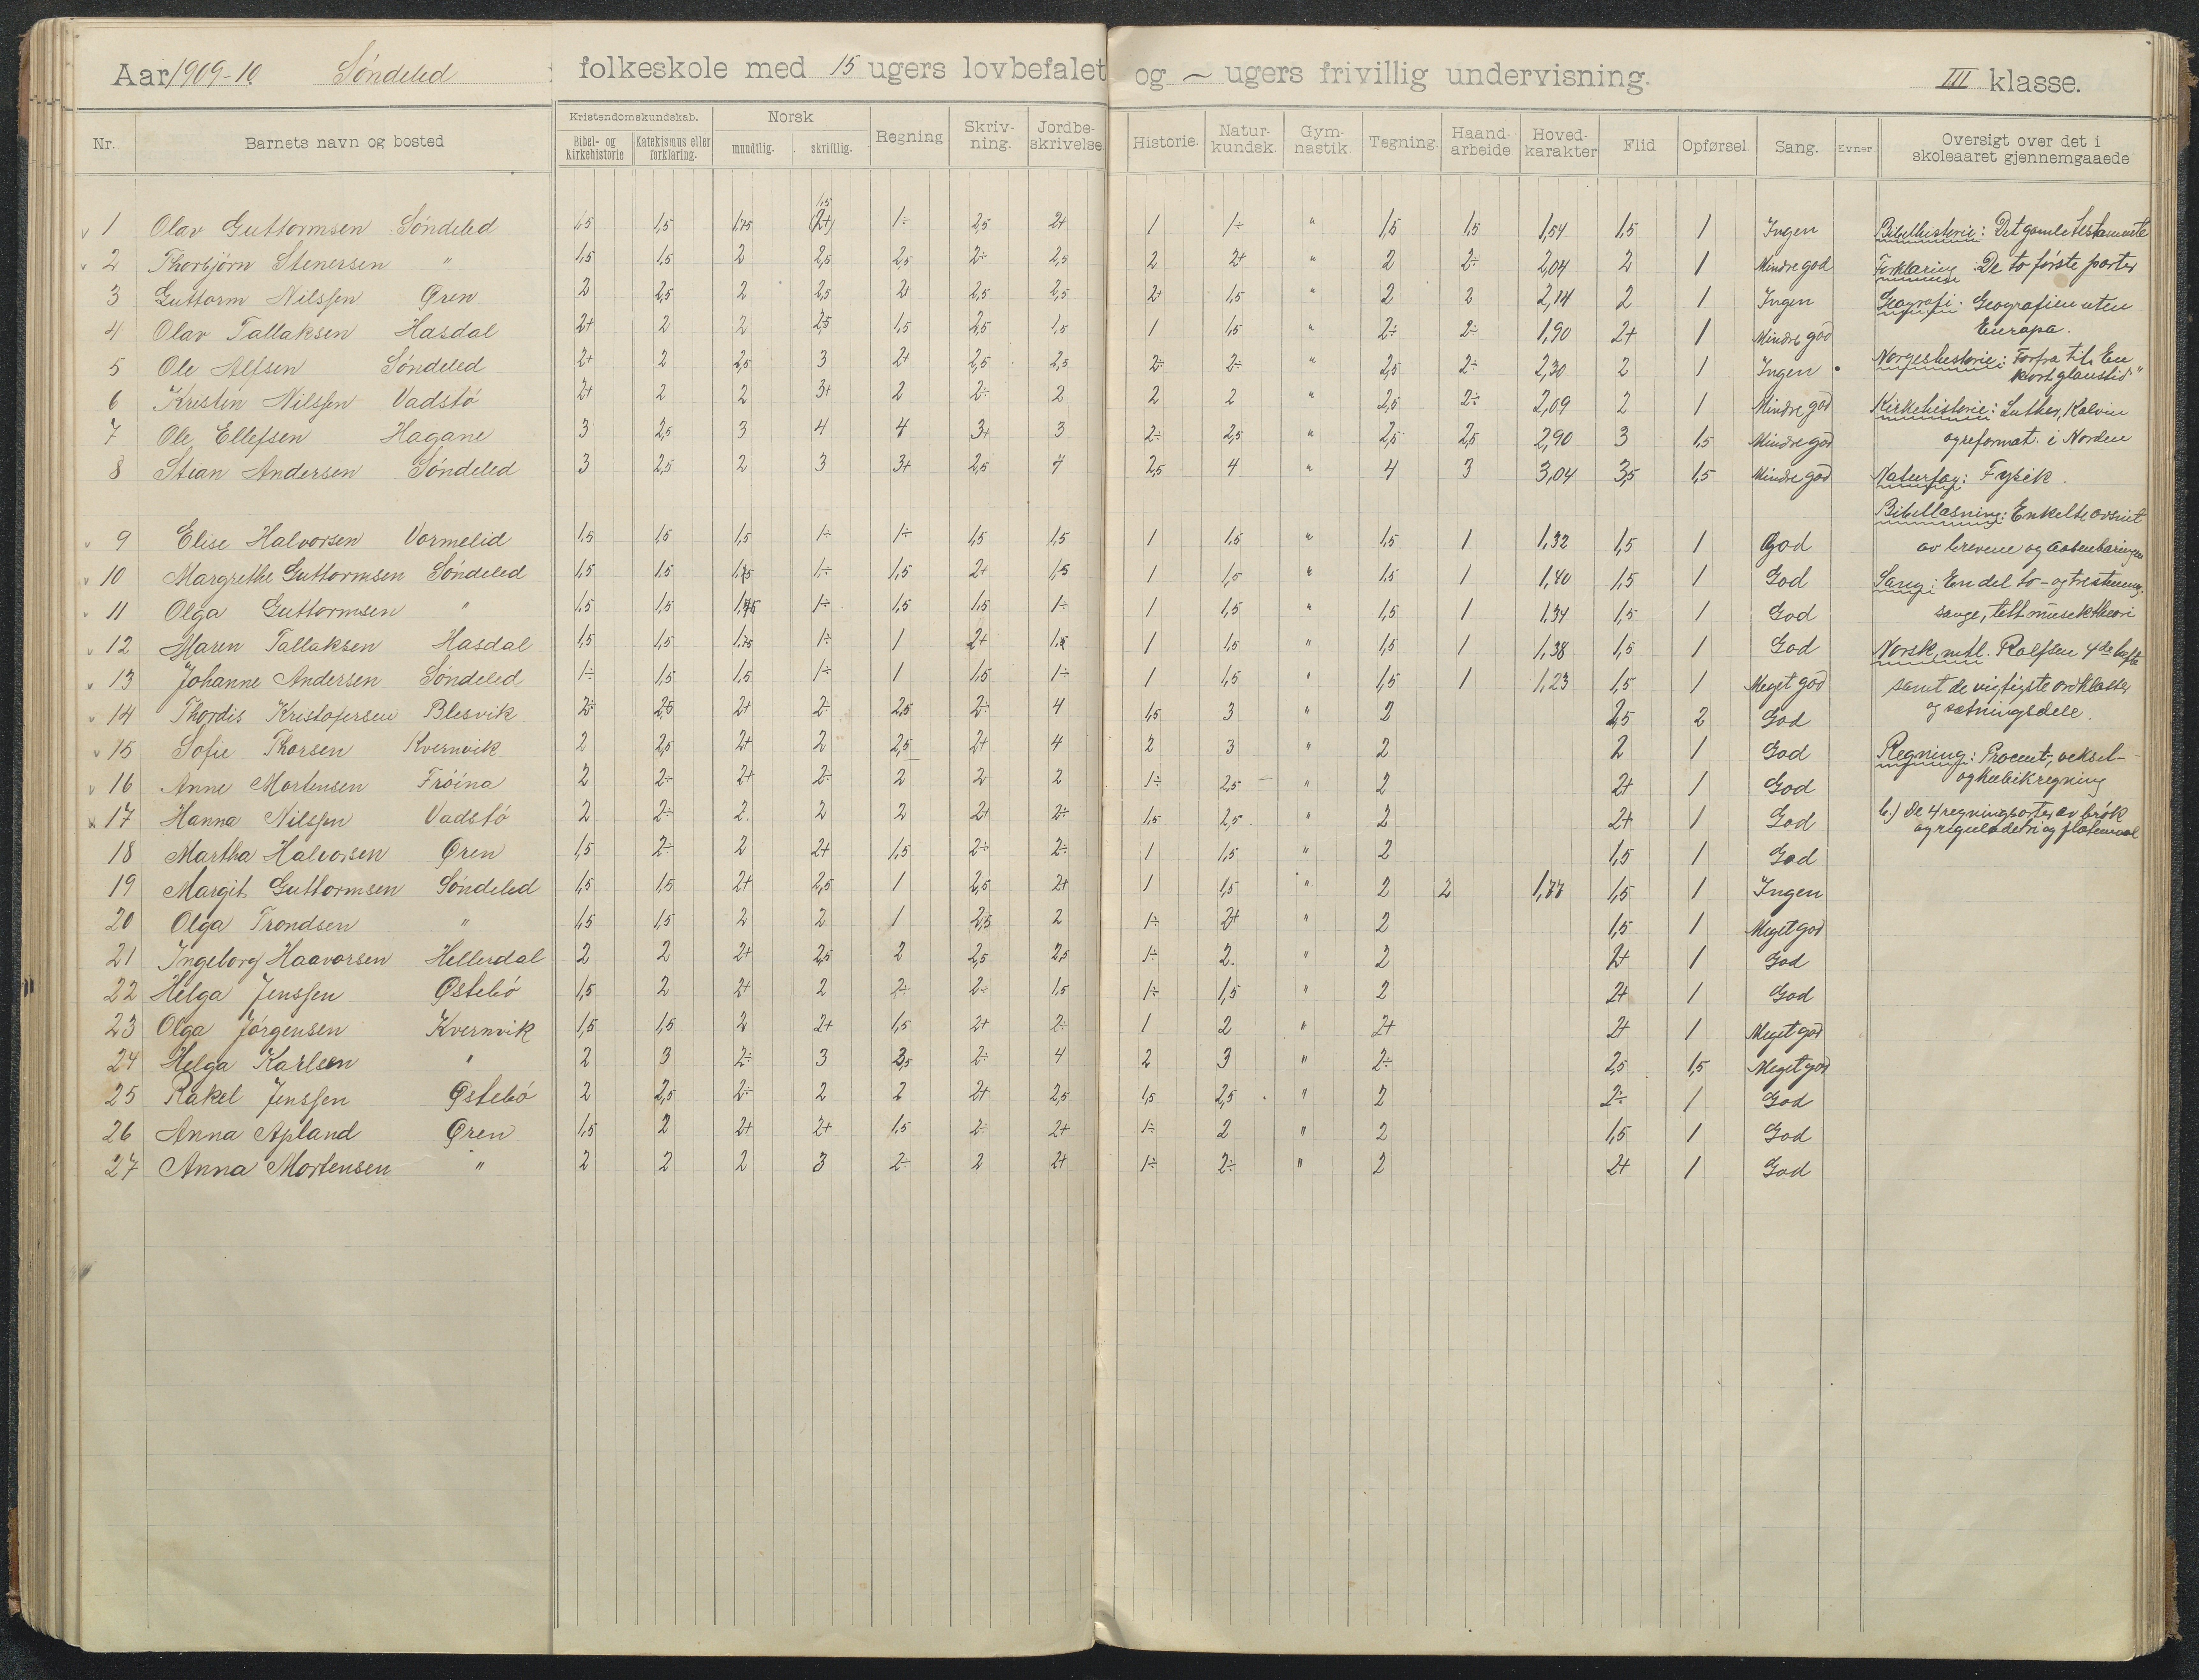 Aar 1909-10 Söndeled folkeskole med 15 ugers lovbefalet og ~ ugers frivillig undervisning. III klasse.
Nr. Barnets navn og bosted Kristendomskundskab. Bibel- og kirkehistorie Katekismus eller forklaring. Norsk mundtlig. skriftlig. Regning Skriv-ning. Jordbe-skrivelse. Historie. Natur-kundsk. Gym-nastik. Tegning. Haand-arbeide Hoved-karakter Flid Opførsel. Sang. Evner Oversigt over det i skoleaaret gjennemgaaede
1,5
1 Olav Guttormsen Söndeled 1,5 1,5 1,75 (2+) 1÷ 2,5 2+ 1 1÷ " 1,5 1,5 1,54 1,5 1 Ingen Bibelhistorie: Det gamle testamente
2 Thorbjörn Stenersen " 1,5 1,5 2 2,5 2,5 2÷ 2,5 2 2+ " 2 2÷ 2,04 2 1 Mindre god Forklaring: De to første parter
3 Guttorm Nilssen Øren 2 2,5 2 2,5 2+ 2,5 2,5 2+ 1,5 " 2 2 2,14 2 1 Ingen Geografi. Geografien uten
4 Olav Tallaksen Hasdal 2+ 2 2 2,5 1,5 2,5 1,5 1 1,5 " 2÷ 2÷ 1,90 2+ 1 Mindre god Europa.
5 Ole Alfsen Söndeled 2+ 2 2,5 3 2+ 2,5 2,5 2÷ 2÷ " 2,5 2÷ 2,30 2 1 Ingen Norgeshistorie: Forfra til "En
kort glanstid"
6 Kristin Nilssen Vadstö 2+ 2 2 3+ 2 2÷ 2 2 2 " 2,5 2÷ 2,09 2 1 Mindre god Kirkehistorie: Luther, Kalvin
7 Ole Ellefsen Hagane 3 2,5 3 4 4 3+ 3 2÷ 2,5 " 2,5 2,5 2,90 3 1,5 Mindre god og reformat. i Norden
8 Stian Andersen Söndeled 3 2,5 2 3 3+ 2,5 4 2,5 4 " 4 3 3,04 3,5 1,5 Mindre god Naturfag: Fysik.
Bibellæsning: Enkelte avsnit
9 Elise Halvorsen Vormelid 1,5 1,5 1,5 1÷ 1÷ 1,5 1,5 1 1,5 " 1,5 1 1,32 1,5 1 God av brevene og aabenbaringen
10 Margrethe Guttormsen Söndeled 1,5 1,5 1,75 1÷ 1,5 2+ 1,5 1 1,5 " 1,5 1 1,40 1,5 1 God Sang: En del to- og trestemmig.
11 Olga Guttormsen " 1,5 1,5 1,75 1÷ 1,5 1,5 1÷ 1 1,5 " 1,5 1 1,34 1,5 1 God sange, litt musiktheori
12 Maren Tallaksen Hasdal 1,5 1,5 1,75 1÷ 1 2+ 1,5 1 1,5 " 1,5 1 1,38 1,5 1 God Norsk, mtl. Rolfsen 4de hefte
13 Johanne Andersen Söndeled 1÷ 1,5 1,5 1÷ 1 1,5 1÷ 1 1,5 " 1,5 1 1,23 1,5 1 Meget god samt de vigtigste ordklasser
14 Thordis Kristofersen Blesvik 2÷ 2,5 2+ 2÷ 2,5 2÷ 4 1,5 3 " 2 2,5 2 God og sætningsdele.
15 Sofie Thorsen Kvernvik 2 2,5 2+ 2 2,5 2+ 4 2 3 " 2 2 1 God Regning: Procent, veksel-
16 Anne Mortensen Fröina 2 2÷ 2+ 2÷ 2 2 2 1÷ 2,5 " 2 2+ 1 God og kubikregning
17 Hanna Nilssen Vadstö 2 2÷ 2 2 2 2+ 2÷ 1,5 2,5 " 2 2+ 1 God b.) de 4 regningsarter av brøk
18 Martha Halvorsen Øren 1,5 2÷ 2 2+ 1,5 2÷ 2÷ 1 1,5 " 2 1,5 1 God og reguladetri og flatemaal
19 Margit Guttormsen Söndeled 1,5 1,5 2+ 2,5 1 2,5 2+ 1 1,5 " 2 2 1,77 1,5 1 Ingen
20 Olga Trondsen " 1,5 1,5 2 2 1 2,5 2 1÷ 2+ " 2 1,5 1 Meget god
21 Ingeborg Haavorsen Hellerdal 2 2 2+ 2,5 2 2,5 2,5 1÷ 2. " 2 2+ 1 God
22 Helga Jenssen Østebö 1,5 2 2+ 2 2÷ 2÷ 1,5 1÷ 1,5 " 2 2+ 1 God
23 Olga Jörgensen Kvernvik 1,5 1,5 2 2+ 1,5 2+ 2÷ 1 2 " 2+ 2+ 1 Meget god
24 Helga Karlsen " 2 3 2÷ 3 2,5 2÷ 4 2 3 " 2÷ 2,5 1,5 Meget god
25 Rakel Jenssen Østebö 2 2,5 2÷ 2 2 2+ 2,5 1,5 2,5 " 2 2÷ 1 God
26 Anna Apland Øren 1,5 2 2+ 2+ 1,5 2÷ 2+ 1÷ 2 " 2 1,5 1 God
27 Anna Mortensen " 2 2 2 3 2÷ 2 2+ 1÷ 2÷ " 2 2+ 1 God